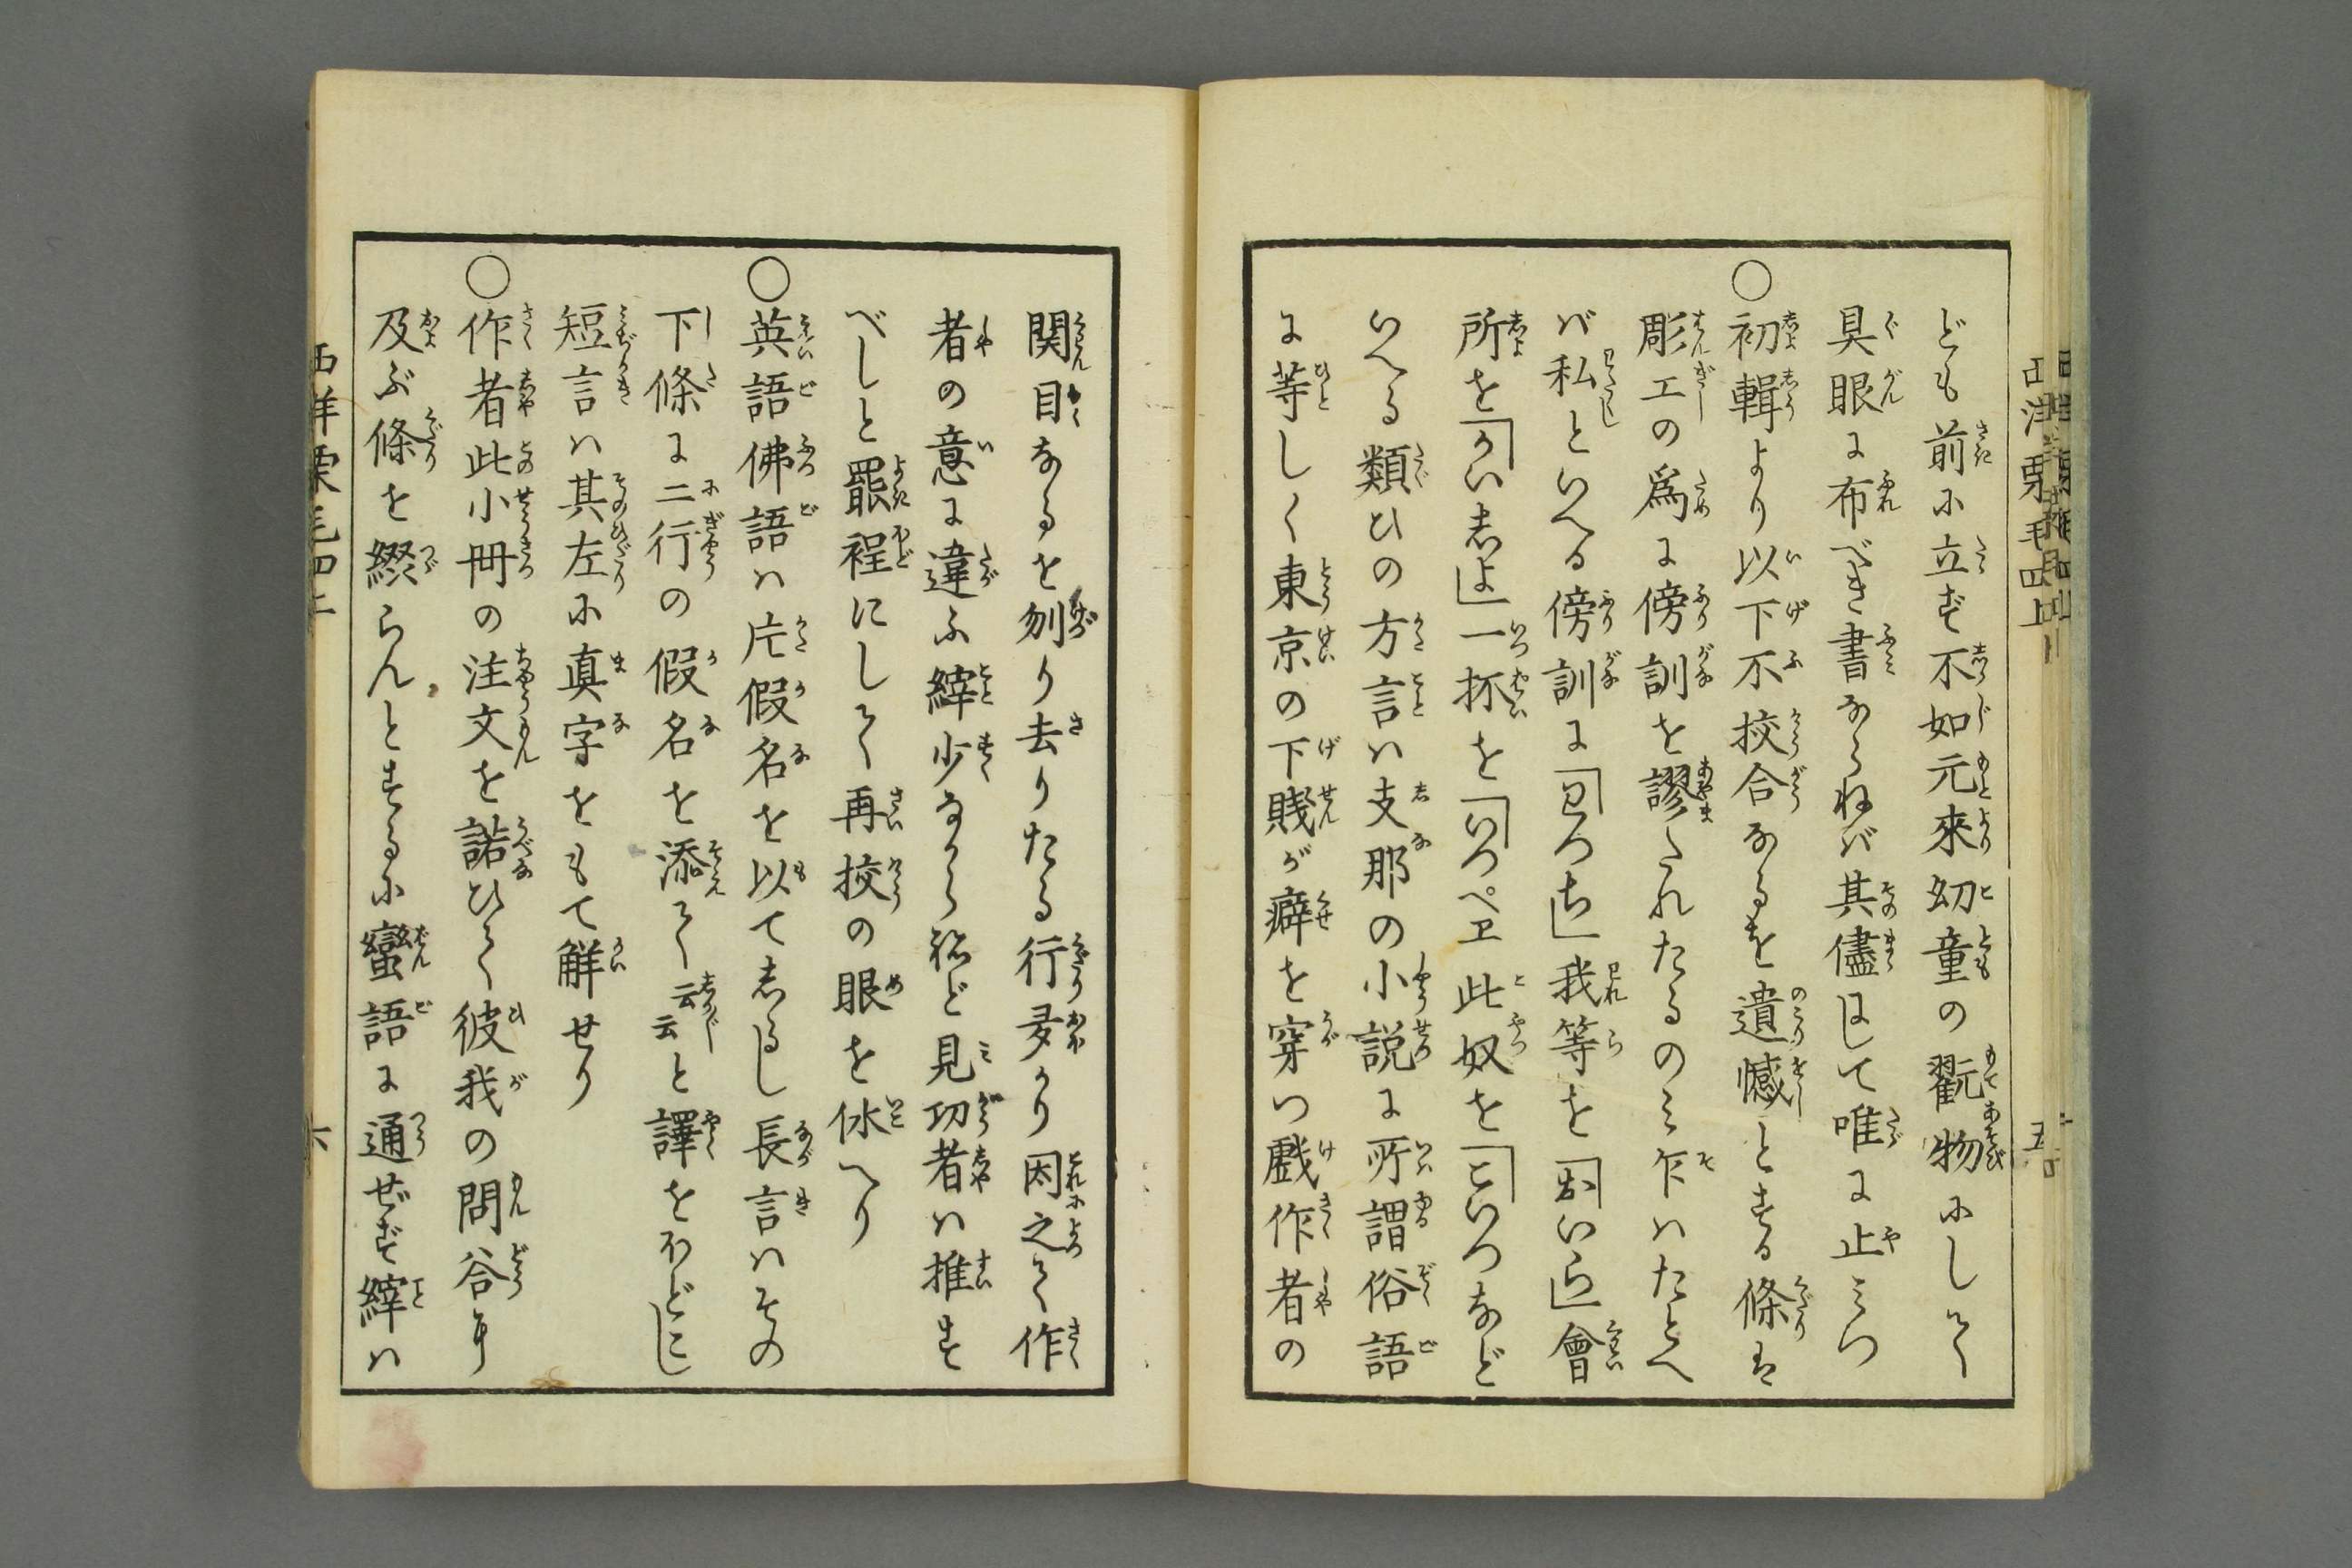 ども前に立ず不如元來幼童の翫物にして
具眼に布べき書ならねば其儘にして唯に止みつ
○初輯より以下不挍合なるを遺憾とする條は
彫工の爲に傍訓を謬られたるのミ乍ハたとへ
バ私といへる傍訓に「わつち」我等を「おいら」會
所を「かいしよ」一抔を「いつペヱ此奴を「こいつなど
いへる類ひの方言ハ支那の小説に所謂俗語
に等しく東京の下賤が癖を穿つ戲作者の
西洋栗毛四上
五
関目なるを刎り去りたる行多かり因之て作
者の意に違ふ縡少なからねど見功者ハ推す
べしと罷程にして再挍の眼を休へり
○英語佛語ハ片假名を以てしるし長言ハその
下條に二行の假名を添て云云と譯をほどこし
短言ハ其左に真字をもて解せり
○作者此小冊の注文を諾ひて彼我の問答に
及ぶ條を綴らんとするに蠻語に通ぜず縡ハ
西洋栗毛四上
六